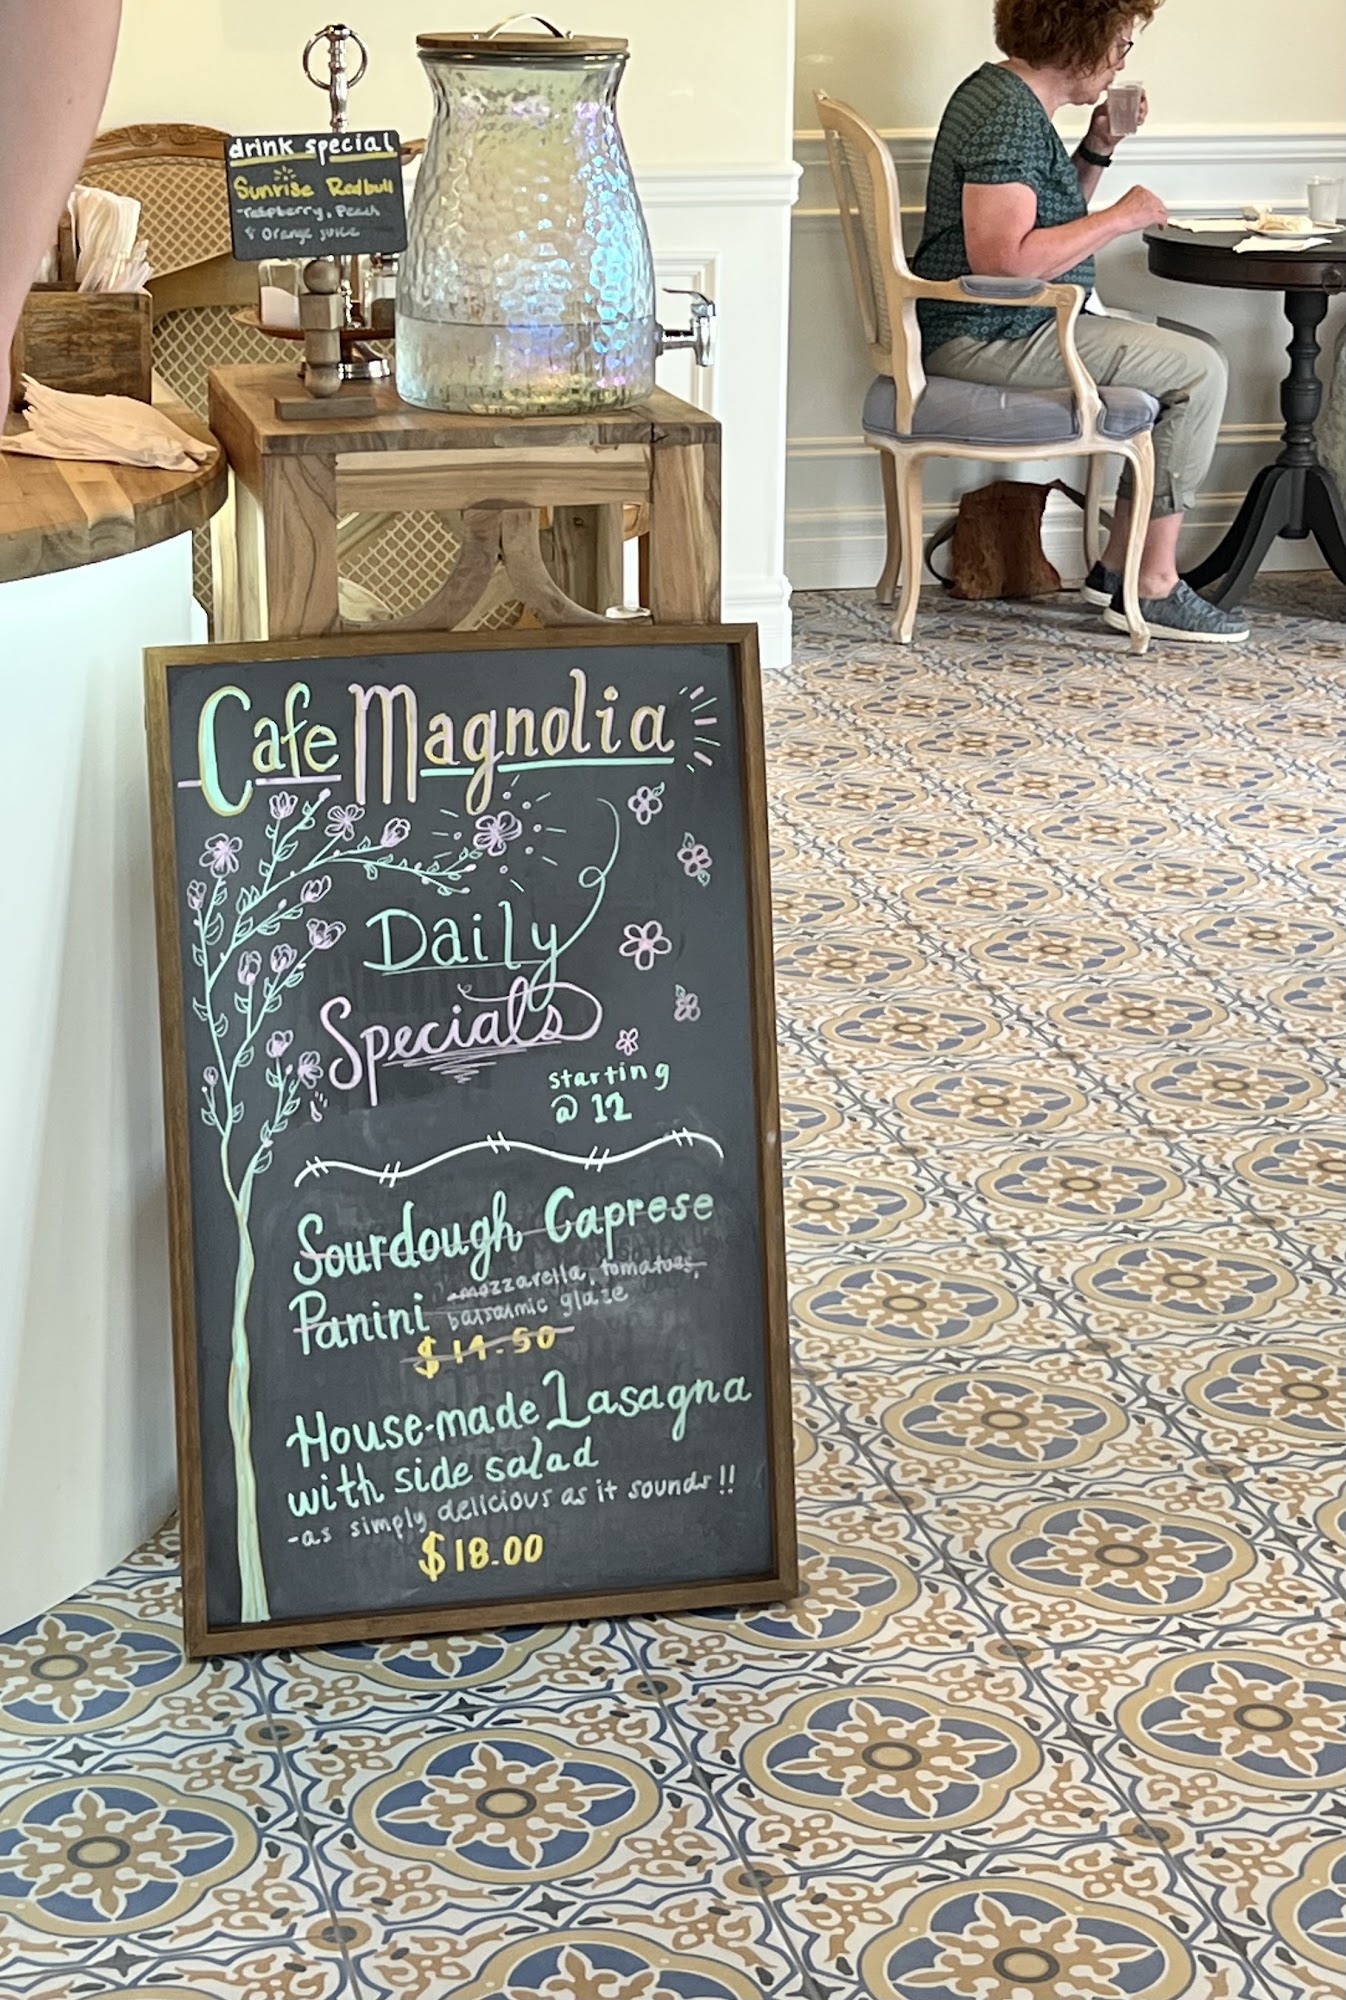 drink special
Sunrise Redbull
-raspberry, Peach
& Orange juice
Cafe Magnolia
Daily
Specials
starting
@ 12
Sourdough Caprese
Panini -mozzarella, tomatoes,
balsalmic glaze
$14.50
House-made Lasagna
with side salad
-as simply delicious as it sounds!!
$18.00